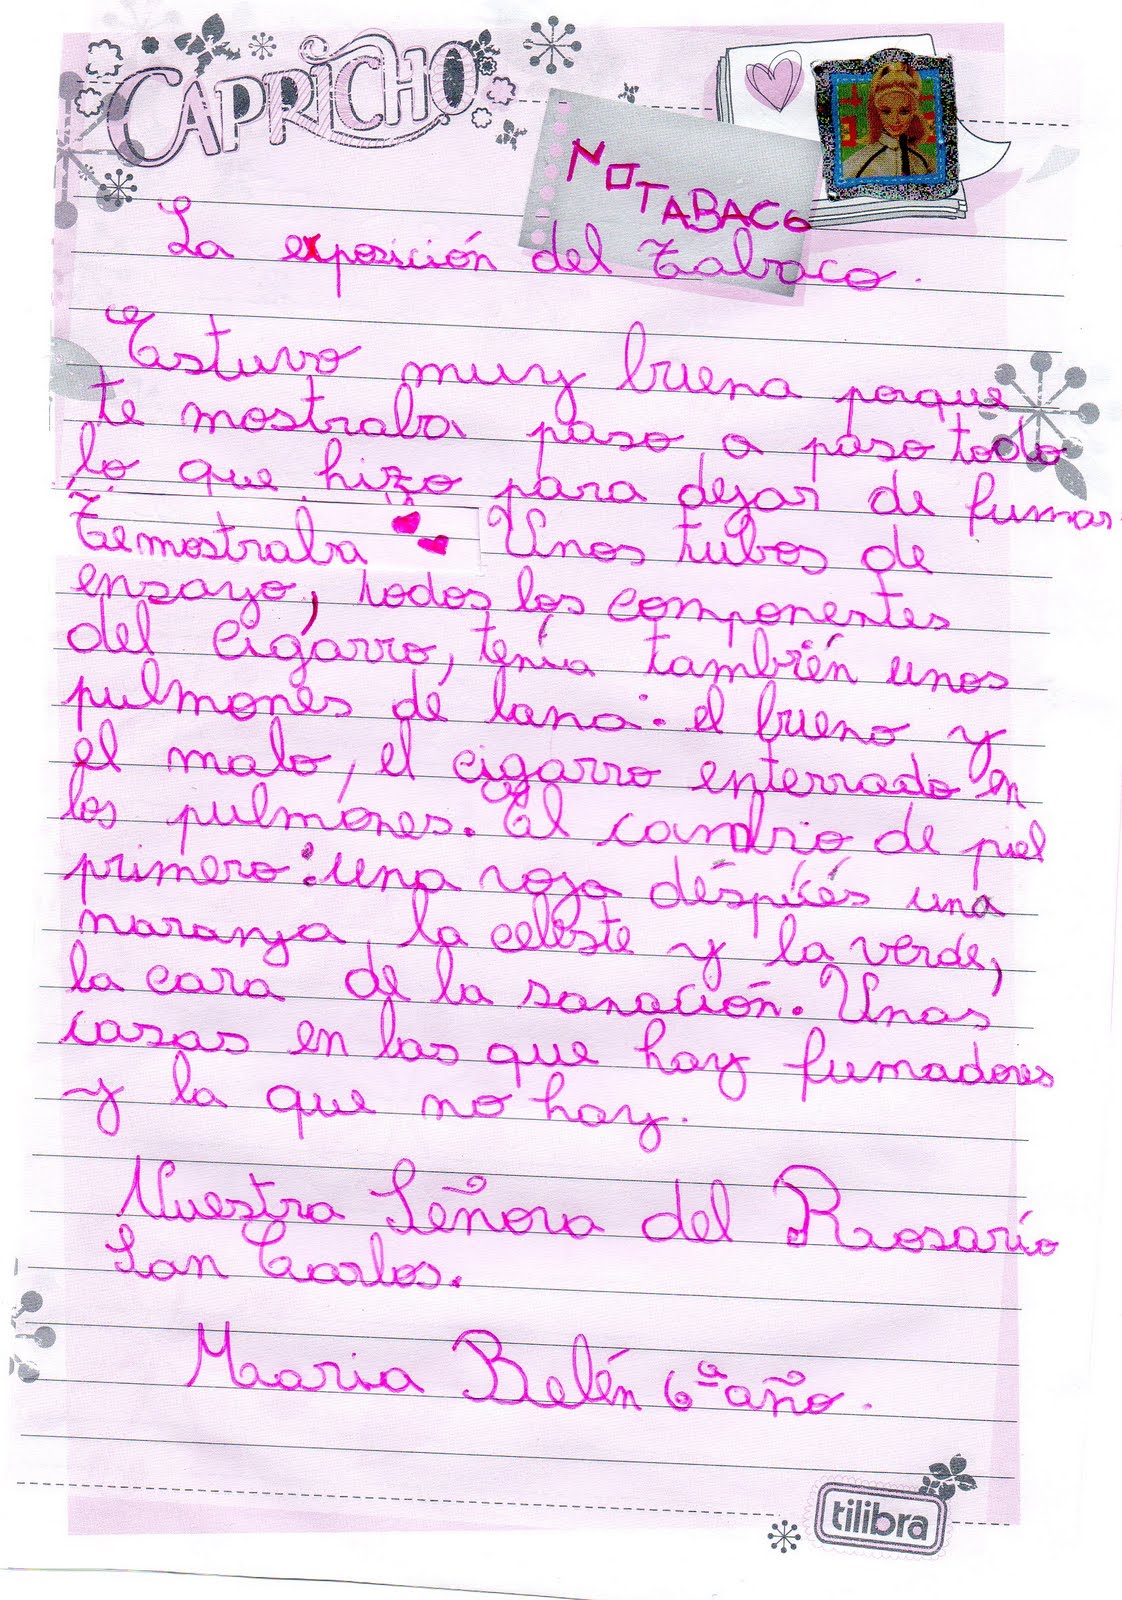 CAPRICHO
NO TABACO
La exposición del Tabaco.
Estuvo muy buena porque
te mostraba paso a paso todo
lo que hizo para dejar de fumar
Te mostraba Unos tubos de
ensayo, todos los componentes
del cigarro, tenía también unos
pulmones de lana: el bueno y
el malo, el cigarro enterrado en
los pulmones. El cambio de piel
primero: una roja después una
naranja, la celeste y la verde,
la cara de la sanación. Unas
casas en las que hay fumadores
y la que no hay.
Nuestra Señora del Rosario
San Carlos.
Maria Belén 6ª año.
tilibra